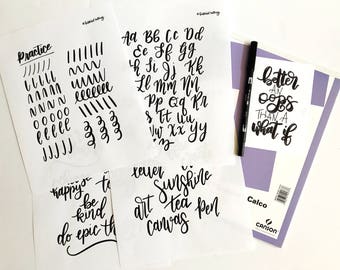 Practice
Aa Bb Cc Dd
Ee Ff Gg
Hh Ii Jj Kk
Ll Mm Nn
Oo Pp Qq Rr
Ss Tt Uu Vv
Ww Xx Yy
Zz
happy
be
kind
do epic
letter
sunshine
art tea pen
canvas
better
an
oops
than a
what if
Calco
CANSON